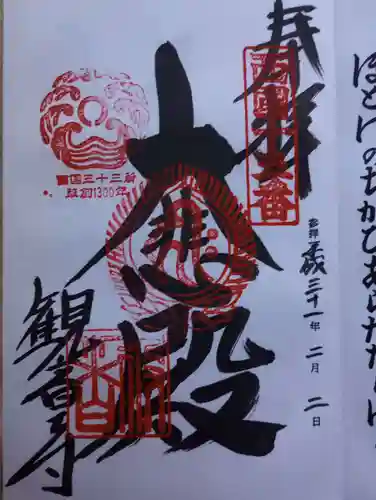 奉拝
西国十五番
西国三十三所
草創1300年
大悲殿
平成三十一年二月二日
観音寺
ほとけのちかひあらたなりけ